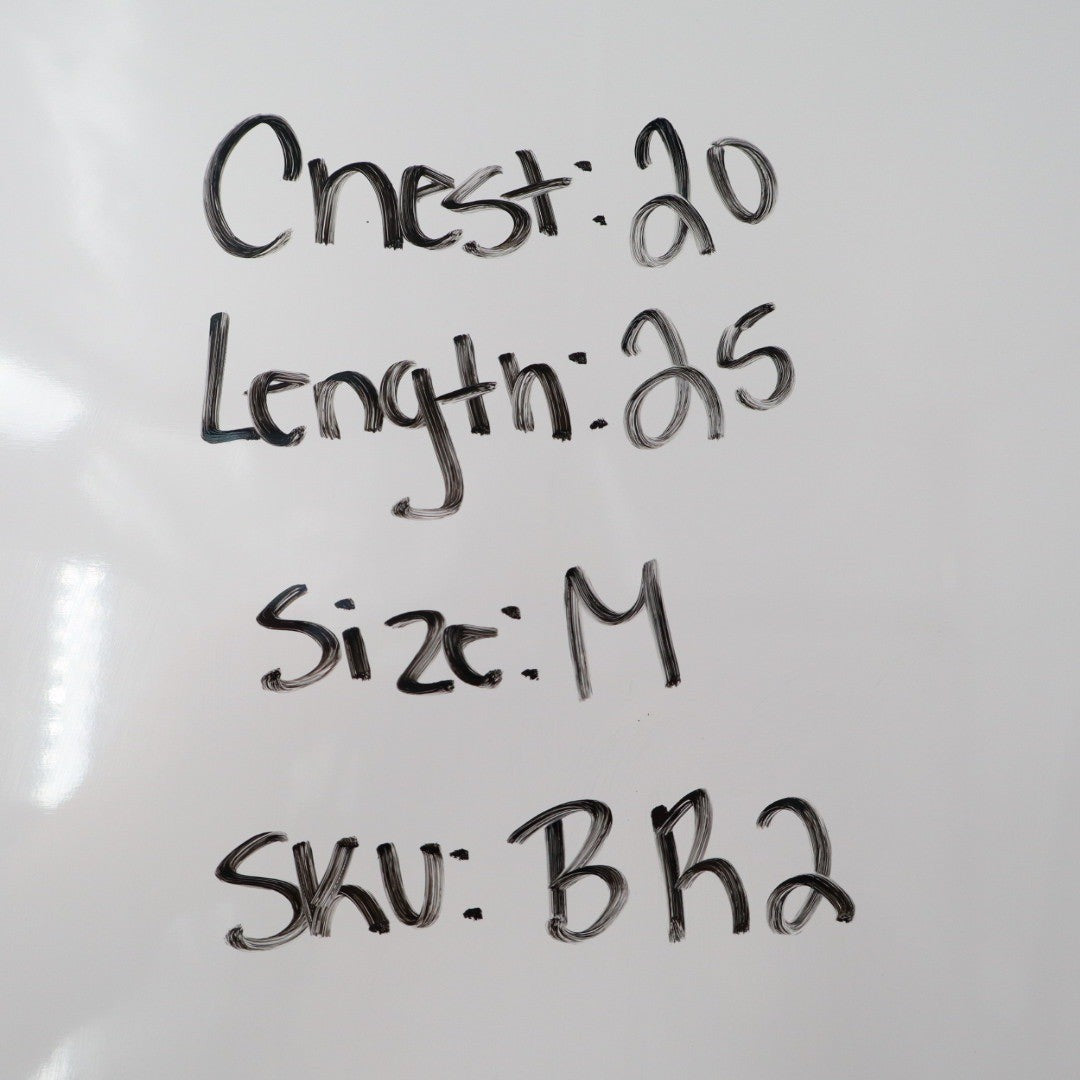 Chest: 20
Length: 25
Size: M
SKU: BR2